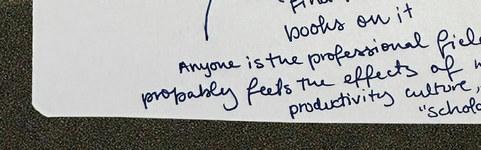 books on it
Anyone is the professional
probably feels the effects of
productivity culture,